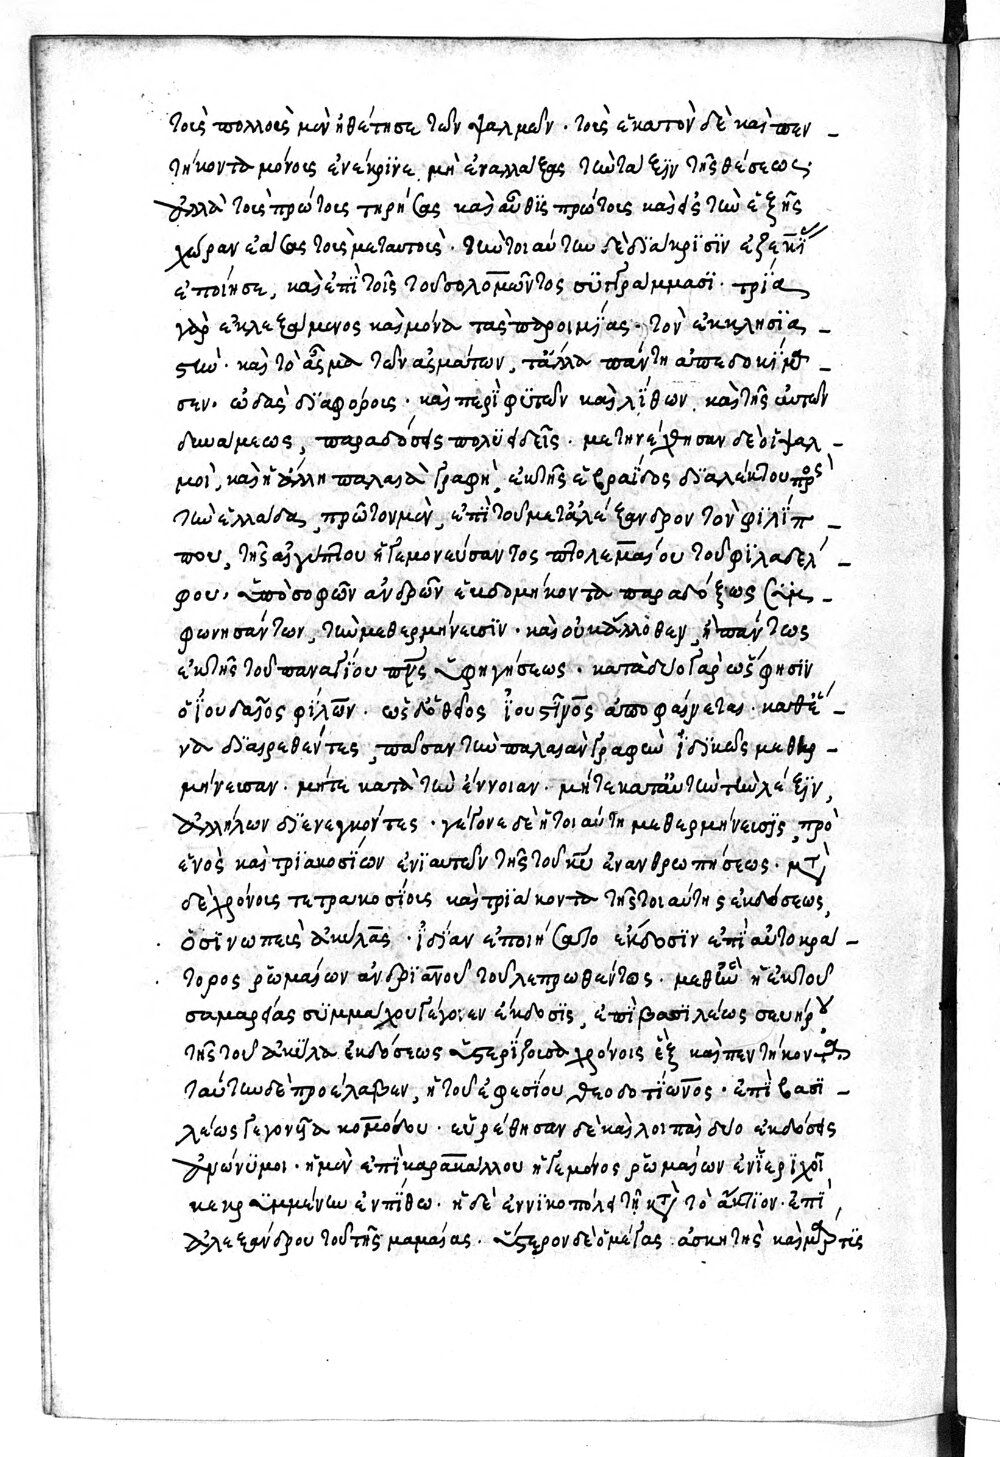 τοὺς πολλοὺς μὲν ἠθέτησε τῶν ψαλμῶν · τοὺς ἑκατὸν δὲ καὶ πεν –
τήκοντα μόνους ἐνέκρινε, μὴ ἐναλλάξας τὴν τάξιν τῆς θέσεως,
ἀλλὰ τοὺς πρώτους τηρήσας καὶ αὖθις πρώτους καὶ εἰς τὴν ἑξῆς
χώραν ἐάσας τοὺς μετ αὐτοὺς · τὴν τοιαύτην δὲ διάκρισιν
ἐποίησε, καὶ ἐπὶ τοῖς τοῦ σολομῶντος συγγράμμασι · τρία
γὰρ ἐκλεξάμενος καὶ μόνα τὰς παροιμίας · τὸν ἐκκλησια –
στὴν · καὶ τὸ ᾆσμα τῶν ᾀσμάτων, τἄλλα πάντη ἀπεδοκίμα –
σεν · ᾠδὰς διαφόρους · καὶ περὶ φυτῶν καὶ λίθων καὶ τῆς αὐτῶν
δυνάμεως, παραδόσεις πολυειδεῖς · μετηνέχθησαν δὲ οἱ ψαλ –
μοὶ, καὶ ἡ ἄλλη παλαιὰ γραφὴ, ἐκ τῆς ἑβραΐδος διαλέκτου πρὸς
τὴν ἑλλάδα, πρῶτον μὲν, ἐπὶ τοῦ μετ ἀλέξανδρον τὸν φιλίπ –
που, τῆς αἰγύπτου ἡγεμονεύσαντος πτολεμαίου τοῦ φιλαδέλ –
φου, ὑπὸ σοφῶν ἀνδρῶν ἑβδομήκοντα παραδόξως συμ –
φωνησάντων, τὴν μεθερμήνευσιν · καὶ οὐκ ἄλλοθεν, ἢ πάντως
ἐκ τῆς τοῦ παναγίου πνς ὑφηγήσεως · κατὰ δύο γὰρ ὥς φησιν
ὁ ἰουδαῖος φίλων · ὡς δ ὁ θεῖος ἰουστῖνος ἀποφαίνεται · καθ ἕ –
να διαιρεθέντες, πᾶσαν τὴν παλαιὰν γραφὴν ἰδικῶς μεθερ –
μήνευσαν · μήτε κατὰ τὴν ἔννοιαν · μήτε κατ αὐτὴν τὴν λέξιν,
ἀλλήλων διενεγκόντες · γέγονε δὲ ἡ τοιαύτη μεθερμήνευσις, πρὸ
ἑνὸς καὶ τριακοσίων ἐνιαυτῶν τῆς τοῦ κυ ἐνανθρωπήσεως · μτ
δὲ χρόνους τετρακοσίους καὶ τριάκοντα τῆς τοιαύτης ἐκδόσεως,
ὁ σινωπεὺς ἀκύλας · ἰδίαν ἐποιήσατο ἔκδοσιν ἐπὶ αὐτοκρά –
τορος ῥωμαίων ἀνδριανοῦ τοῦ λεπρωθέντος · μεθ ἣν ἡ ἐκ τοῦ
σαμαρείας συμμάχου γέγονεν ἔκδοσις, ἐπὶ βασιλέως σευήρου
τῆς τοῦ ἀκύλα ἐκδόσεως ὑστερίζουσα χρόνοις ἓξ καὶ πεντήκοντα
ταύτην δὲ προέλαβεν, ἡ τοῦ ἐφεσίου θεοδοτίωνος · ἐπὶ βασι –
λέως γεγονυῖα κομόδου · εὑρέθησαν δὲ καὶ λοιπαὶ δύο ἐκδόσεις
ἀνώνυμοι · ἡ μὲν ἐπὶ καρακάλλου ἡγεμόνος ῥωμαίων ἐν ἱεριχοῖ
κεκρυμμένων ἐν πίθω · ἡ δὲ ἐν νικοπόλει τῇ κτ τὸ ἄκτιον · ἐπὶ
ἀλεξάνδρου τοῦ τῆς μαμαίας · ὕστερον δὲ ὁ μέγας ἀσκητὴς καὶ μάρτυς